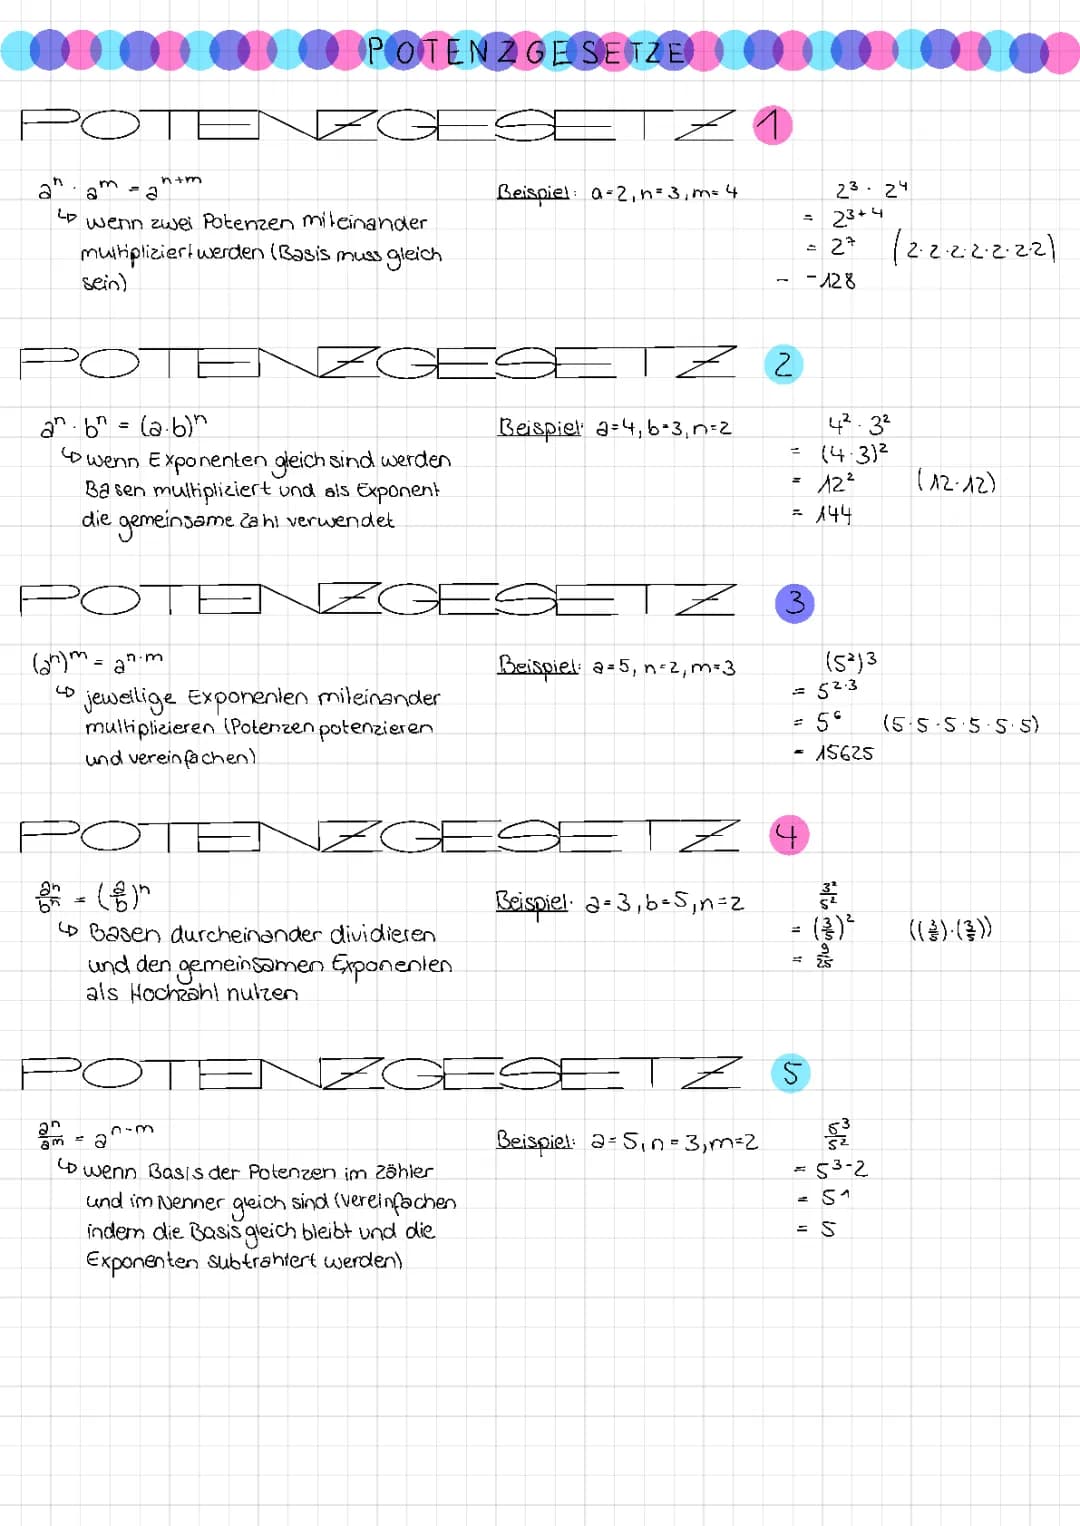 POTENZGESETZE
POTENZGESETZ 1
aⁿ · aᵐ = aⁿ⁺ᵐ
↳ wenn zwei Potenzen miteinander
multipliziert werden (Basis muss gleich
sein)
Beispiel: a=2, n=3, m=4
2³ · 2⁴
= 2³⁺⁴
= 2⁷ (2·2·2·2·2·2·2)
- -128
POTENZGESETZ 2
aⁿ · bⁿ = (a·b)ⁿ
↳ wenn Exponenten gleich sind werden
Basen multipliziert und als Exponent
die gemeinsame Zahl verwendet
Beispiel: a=4, b=3, n=2
4² · 3²
= (4·3)²
= 12² (12·12)
= 144
POTENZGESETZ 3
(aⁿ)ᵐ = aⁿ·ᵐ
↳ jeweilige Exponenten miteinander
multiplizieren (Potenzen potenzieren
und vereinfachen)
Beispiel: a=5, n=2, m=3
(5²)³
= 5²·³
= 5⁶ (5·5·5·5·5·5)
= 15625
POTENZGESETZ 4
aⁿ/bⁿ = (a/b)ⁿ
↳ Basen durcheinander dividieren
und den gemeinsamen Exponenten
als Hochzahl nutzen
Beispiel: a=3, b=5, n=2
3²/5²
= (3/5)² ((3/5)·(3/5))
= 9/25
POTENZGESETZ 5
aⁿ/aᵐ = aⁿ⁻ᵐ
↳ wenn Basis der Potenzen im Zähler
und im Nenner gleich sind (vereinfachen
indem die Basis gleich bleibt und die
Exponenten subtrahiert werden)
Beispiel: a=5, n=3, m=2
5³/5²
= 5³⁻²
= 5¹
= 5